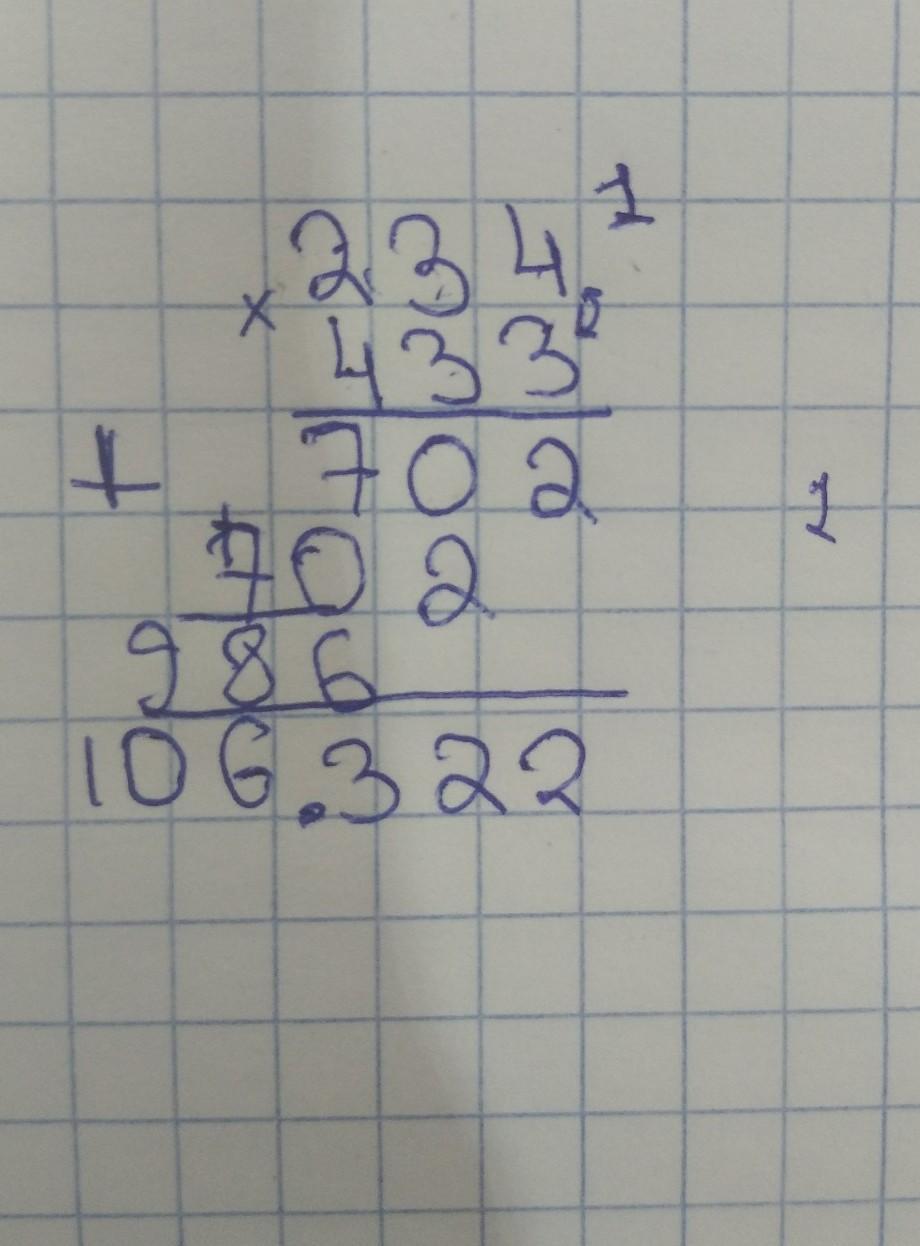 1
234
0
× 433
+ 702
1
702
986
106.322